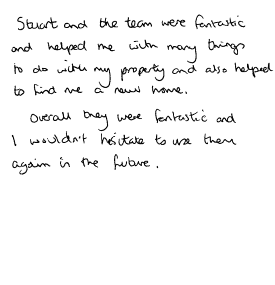 Stuart and the team were fantastic
and helped me with many things
to do with my property and also helped
to find me a new home.
Overall they were fantastic and
I wouldn't hesitate to use them
again in the future.